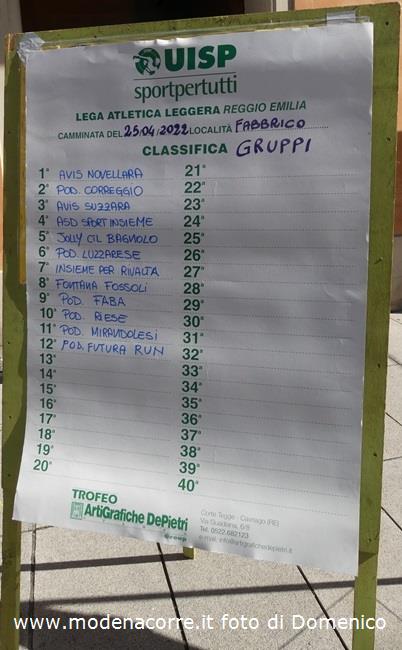 UISP
sportpertutti
LEGA ATLETICA LEGGERA REGGIO EMILIA
CAMMINATA DEL 25/04/2022 LOCALITÀ FABBRICO
CLASSIFICA GRUPPI
1° AVIS NOVELLARA
2° POD. CORREGGIO
3° AVIS SUZZARA
4° ASD SPORTINSIEME
5° JOLLY CTL BAGNOLO
6° POD. LUZZARESE
7° INSIEME PER RIVALTA
8° FONTANA FOSSOLI
9° POD. FABA
10° POD. RIESE
11° POD. MIRANDOLESI
12° POD. FUTURA RUN
13°
14°
15°
16°
17°
18°
19°
20°
21°
22°
23°
24°
25°
26°
27°
28°
29°
30°
31°
32°
33°
34°
35°
36°
37°
38°
39°
40°
TROFEO
ArtiGrafiche DePietri
Group
Corte Tegge - Cavriago (RE)
Via Guadiana, 6/8
Tel. 0522.682123
e-mail: info@artigrafichedepietri.it
www.modenacorre.it foto di Domenico